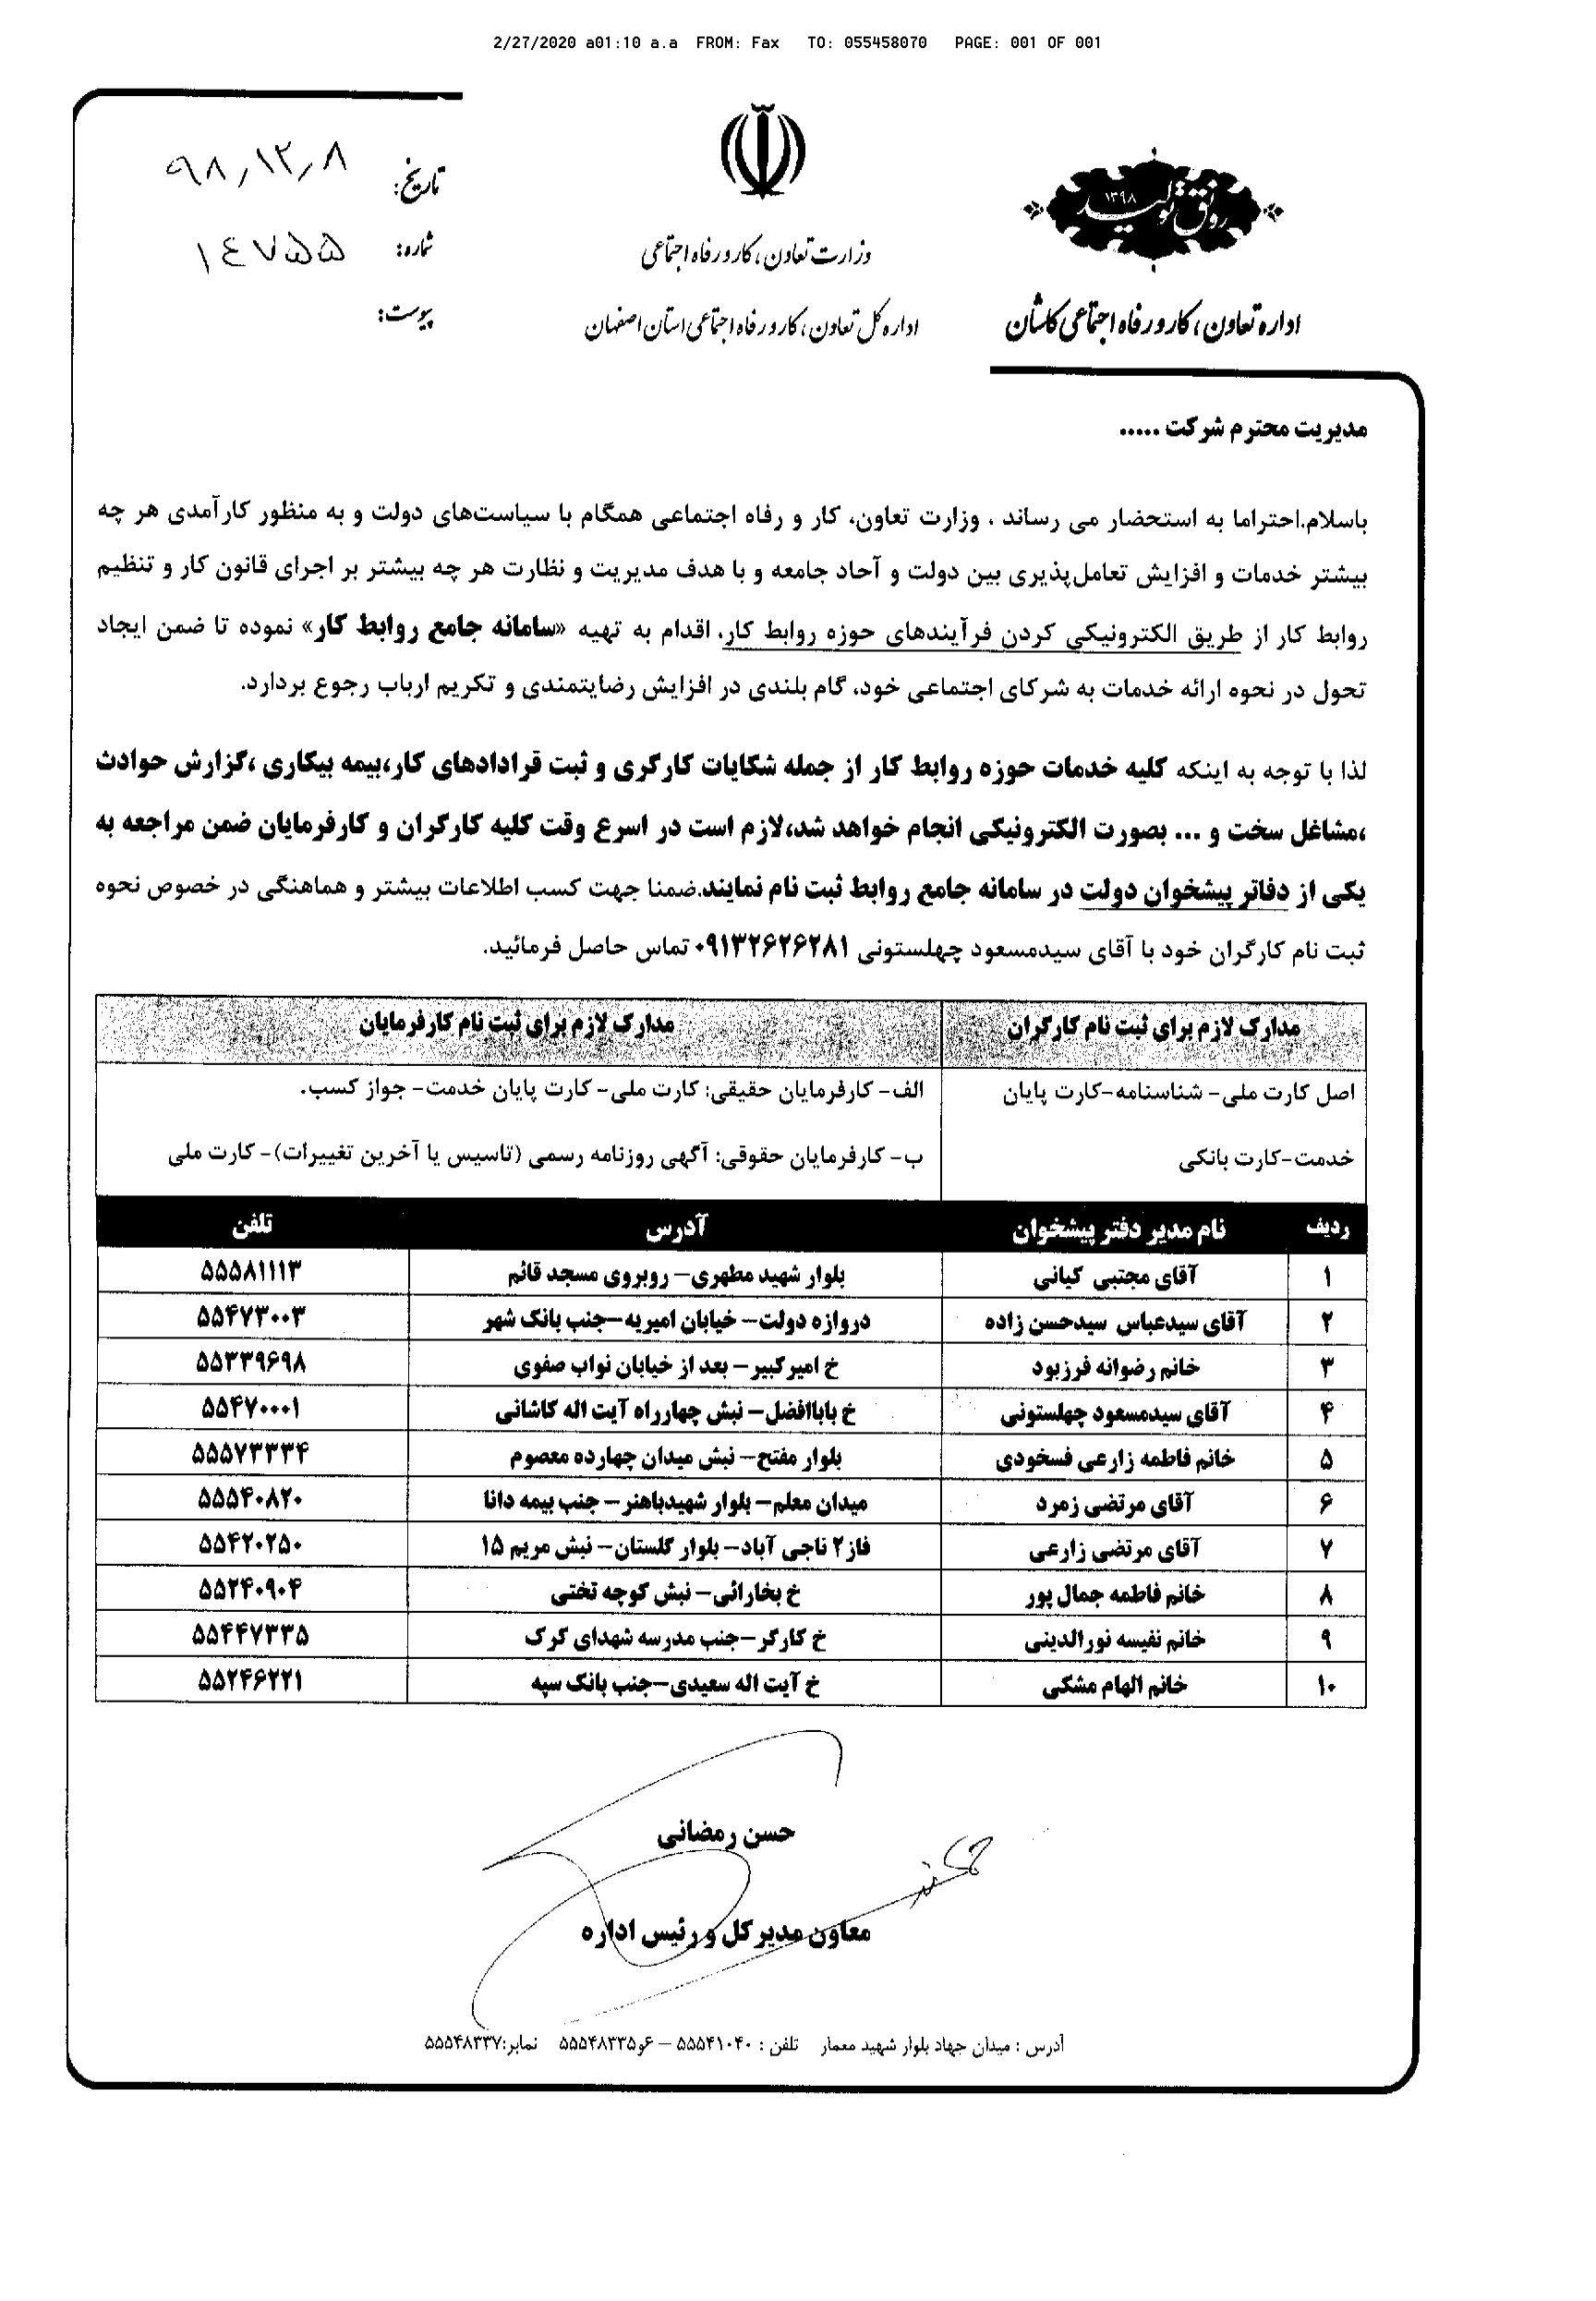 2/27/2020 a01:10 a.a FROM: Fax TO: 055458070 PAGE: 001 OF 001
رونق تولید
۱۳۹۸
اداره تعاون، کار و رفاه اجتماعی کاشان
وزارت تعاون، کار و رفاه اجتماعی
اداره کل تعاون، کار و رفاه اجتماعی استان اصفهان
تاریخ: ۹۸,۱۲,۸
شماره: ۱٤۷۵۵
پیوست:
مدیریت محترم شرکت .....
باسلام.احتراما به استحضار می رساند ، وزارت تعاون، کار و رفاه اجتماعی همگام با سیاست‌های دولت و به منظور کارآمدی هر چه
بیشتر خدمات و افزایش تعامل‌پذیری بین دولت و آحاد جامعه و با هدف مدیریت و نظارت هر چه بیشتر بر اجرای قانون کار و تنظیم
روابط کار از طریق الکترونیکی کردن فرآیندهای حوزه روابط کار، اقدام به تهیه «سامانه جامع روابط کار» نموده تا ضمن ایجاد
تحول در نحوه ارائه خدمات به شرکای اجتماعی خود، گام بلندی در افزایش رضایتمندی و تکریم ارباب رجوع بردارد.
لذا با توجه به اینکه کلیه خدمات حوزه روابط کار از جمله شکایات کارگری و ثبت قرادادهای کار،بیمه بیکاری ،گزارش حوادث
،مشاغل سخت و ... بصورت الکترونیکی انجام خواهد شد،لازم است در اسرع وقت کلیه کارگران و کارفرمایان ضمن مراجعه به
یکی از دفاتر پیشخوان دولت در سامانه جامع روابط ثبت نام نمایند.ضمنا جهت کسب اطلاعات بیشتر و هماهنگی در خصوص نحوه
ثبت نام کارگران خود با آقای سیدمسعود چهلستونی ۰۹۱۳۲۶۲۶۲۸۱ تماس حاصل فرمائید.
مدارک لازم برای ثبت نام کارگران
مدارک لازم برای ثبت نام کارفرمایان
اصل کارت ملی- شناسنامه-کارت پایان
خدمت-کارت بانکی
الف- کارفرمایان حقیقی: کارت ملی- کارت پایان خدمت- جواز کسب.
ب- کارفرمایان حقوقی: آگهی روزنامه رسمی (تاسیس یا آخرین تغییرات)- کارت ملی
ردیف نام مدیر دفتر پیشخوان آدرس تلفن
۱ آقای مجتبی کیانی بلوار شهید مطهری- روبروی مسجد قائم ۵۵۵۸۱۱۱۳
۲ آقای سیدعباس سیدحسن زاده دروازه دولت- خیابان امیریه-جنب بانک شهر ۵۵۴۷۳۰۰۳
۳ خانم رضوانه فرزبود خ امیرکبیر- بعد از خیابان نواب صفوی ۵۵۳۳۹۶۹۸
۴ آقای سیدمسعود چهلستونی خ باباافضل- نبش چهارراه آیت اله کاشانی ۵۵۴۷۰۰۰۱
۵ خانم فاطمه زارعی فسخودی بلوار مفتح- نبش میدان چهارده معصوم ۵۵۵۷۳۳۳۴
۶ آقای مرتضی زمرد میدان معلم- بلوار شهیدباهنر- جنب بیمه دانا ۵۵۵۴۰۸۲۰
۷ آقای مرتضی زارعی فاز۲ ناجی آباد- بلوار گلستان- نبش مریم ۱۵ ۵۵۴۲۰۲۵۰
۸ خانم فاطمه جمال پور خ بخارائی- نبش کوچه تختی ۵۵۲۴۰۹۰۴
۹ خانم نفیسه نورالدینی خ کارگر-جنب مدرسه شهدای کرک ۵۵۴۴۷۳۳۵
۱۰ خانم الهام مشکی خ آیت اله سعیدی-جنب بانک سپه ۵۵۲۴۶۲۲۱
حسن رمضانی
معاون مدیر کل و رئیس اداره
آدرس : میدان جهاد بلوار شهید معمار تلفن : ۵۵۵۴۱۰۴۰ – ۶و۵۵۵۴۸۳۳۵ نمابر:۵۵۵۴۸۳۳۷